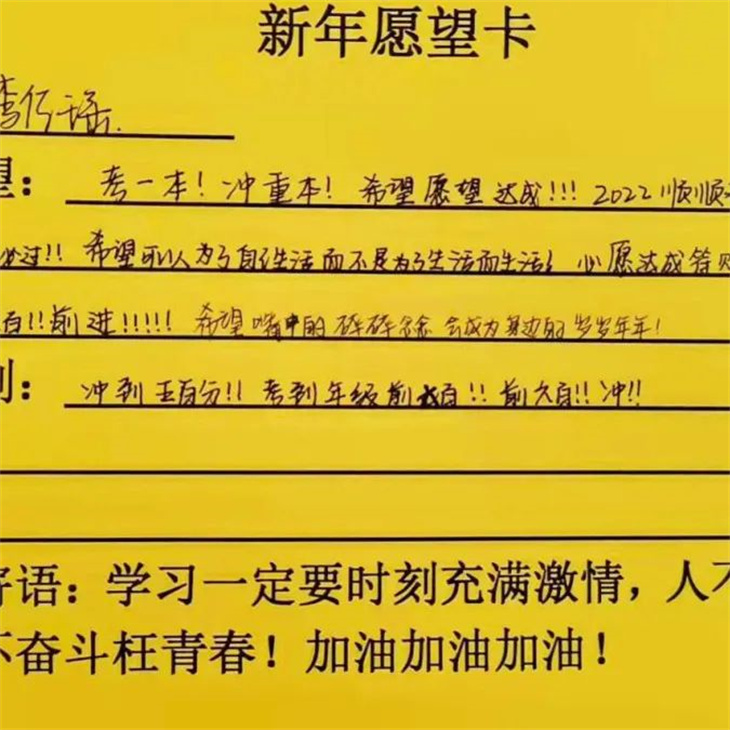 新年愿望卡
望：考一本！冲重本！希望愿望达成!!!2022顺顺
必过!!希望可以人为了自己生活而不是为了生活而生活！心愿达成答
百!!前进!!!!!希望嘴中的碎碎念念会成为身边的岁岁年年！
冲到五百分!!考到年级前 百!!前六百!!冲!!
寄语：学习一定要时刻充满激情，人不
不奋斗枉青春！加油加油加油！